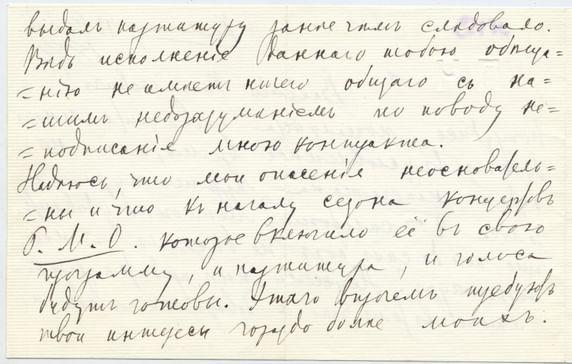 выдалъ партитуру ранѣе чѣмъ слѣдовало.
Вѣдь исполненіе даннаго тобою обѣща=
=нію не имѣетъ ничего общаго съ на=
=шимъ недоразумѣніемъ по поводу не=
=подписанія мною контракта.
Надѣюсь, что мои опасенія неоснователь=
=ны и что къ началу сезона концертовъ
Р. М. О. которое включило её въ свою
программу, и партитура, и голоса
будутъ готовы. Этого впрочемъ требуютъ
твои интересы гораздо болѣе моихъ.